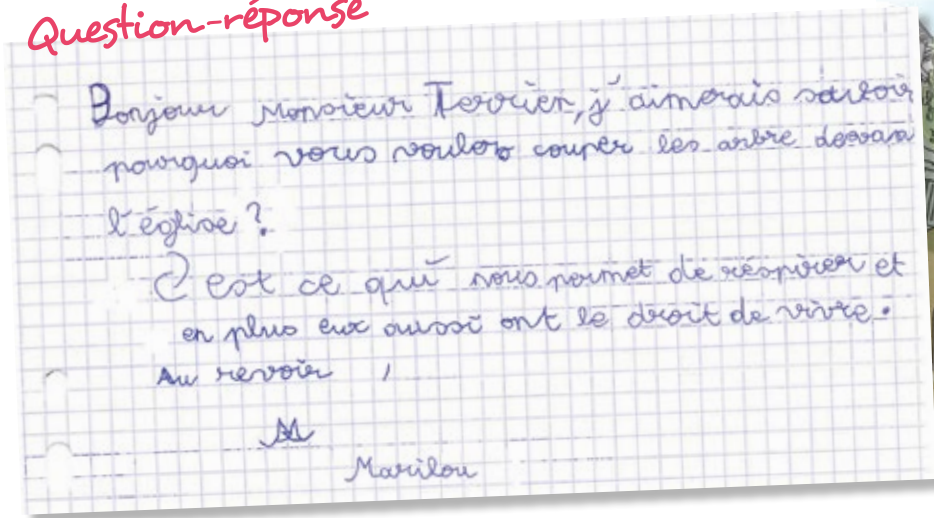 Question-réponse
Bonjour Monsieur Terrier, j'aimerais savoir
pourquoi vous voulos couper les arbre devan
l'église ?
C'est ce qui nous permet de réspirer et
en plus eux aussi ont le droit de vivre.
Au revoir ,
M
Marilou